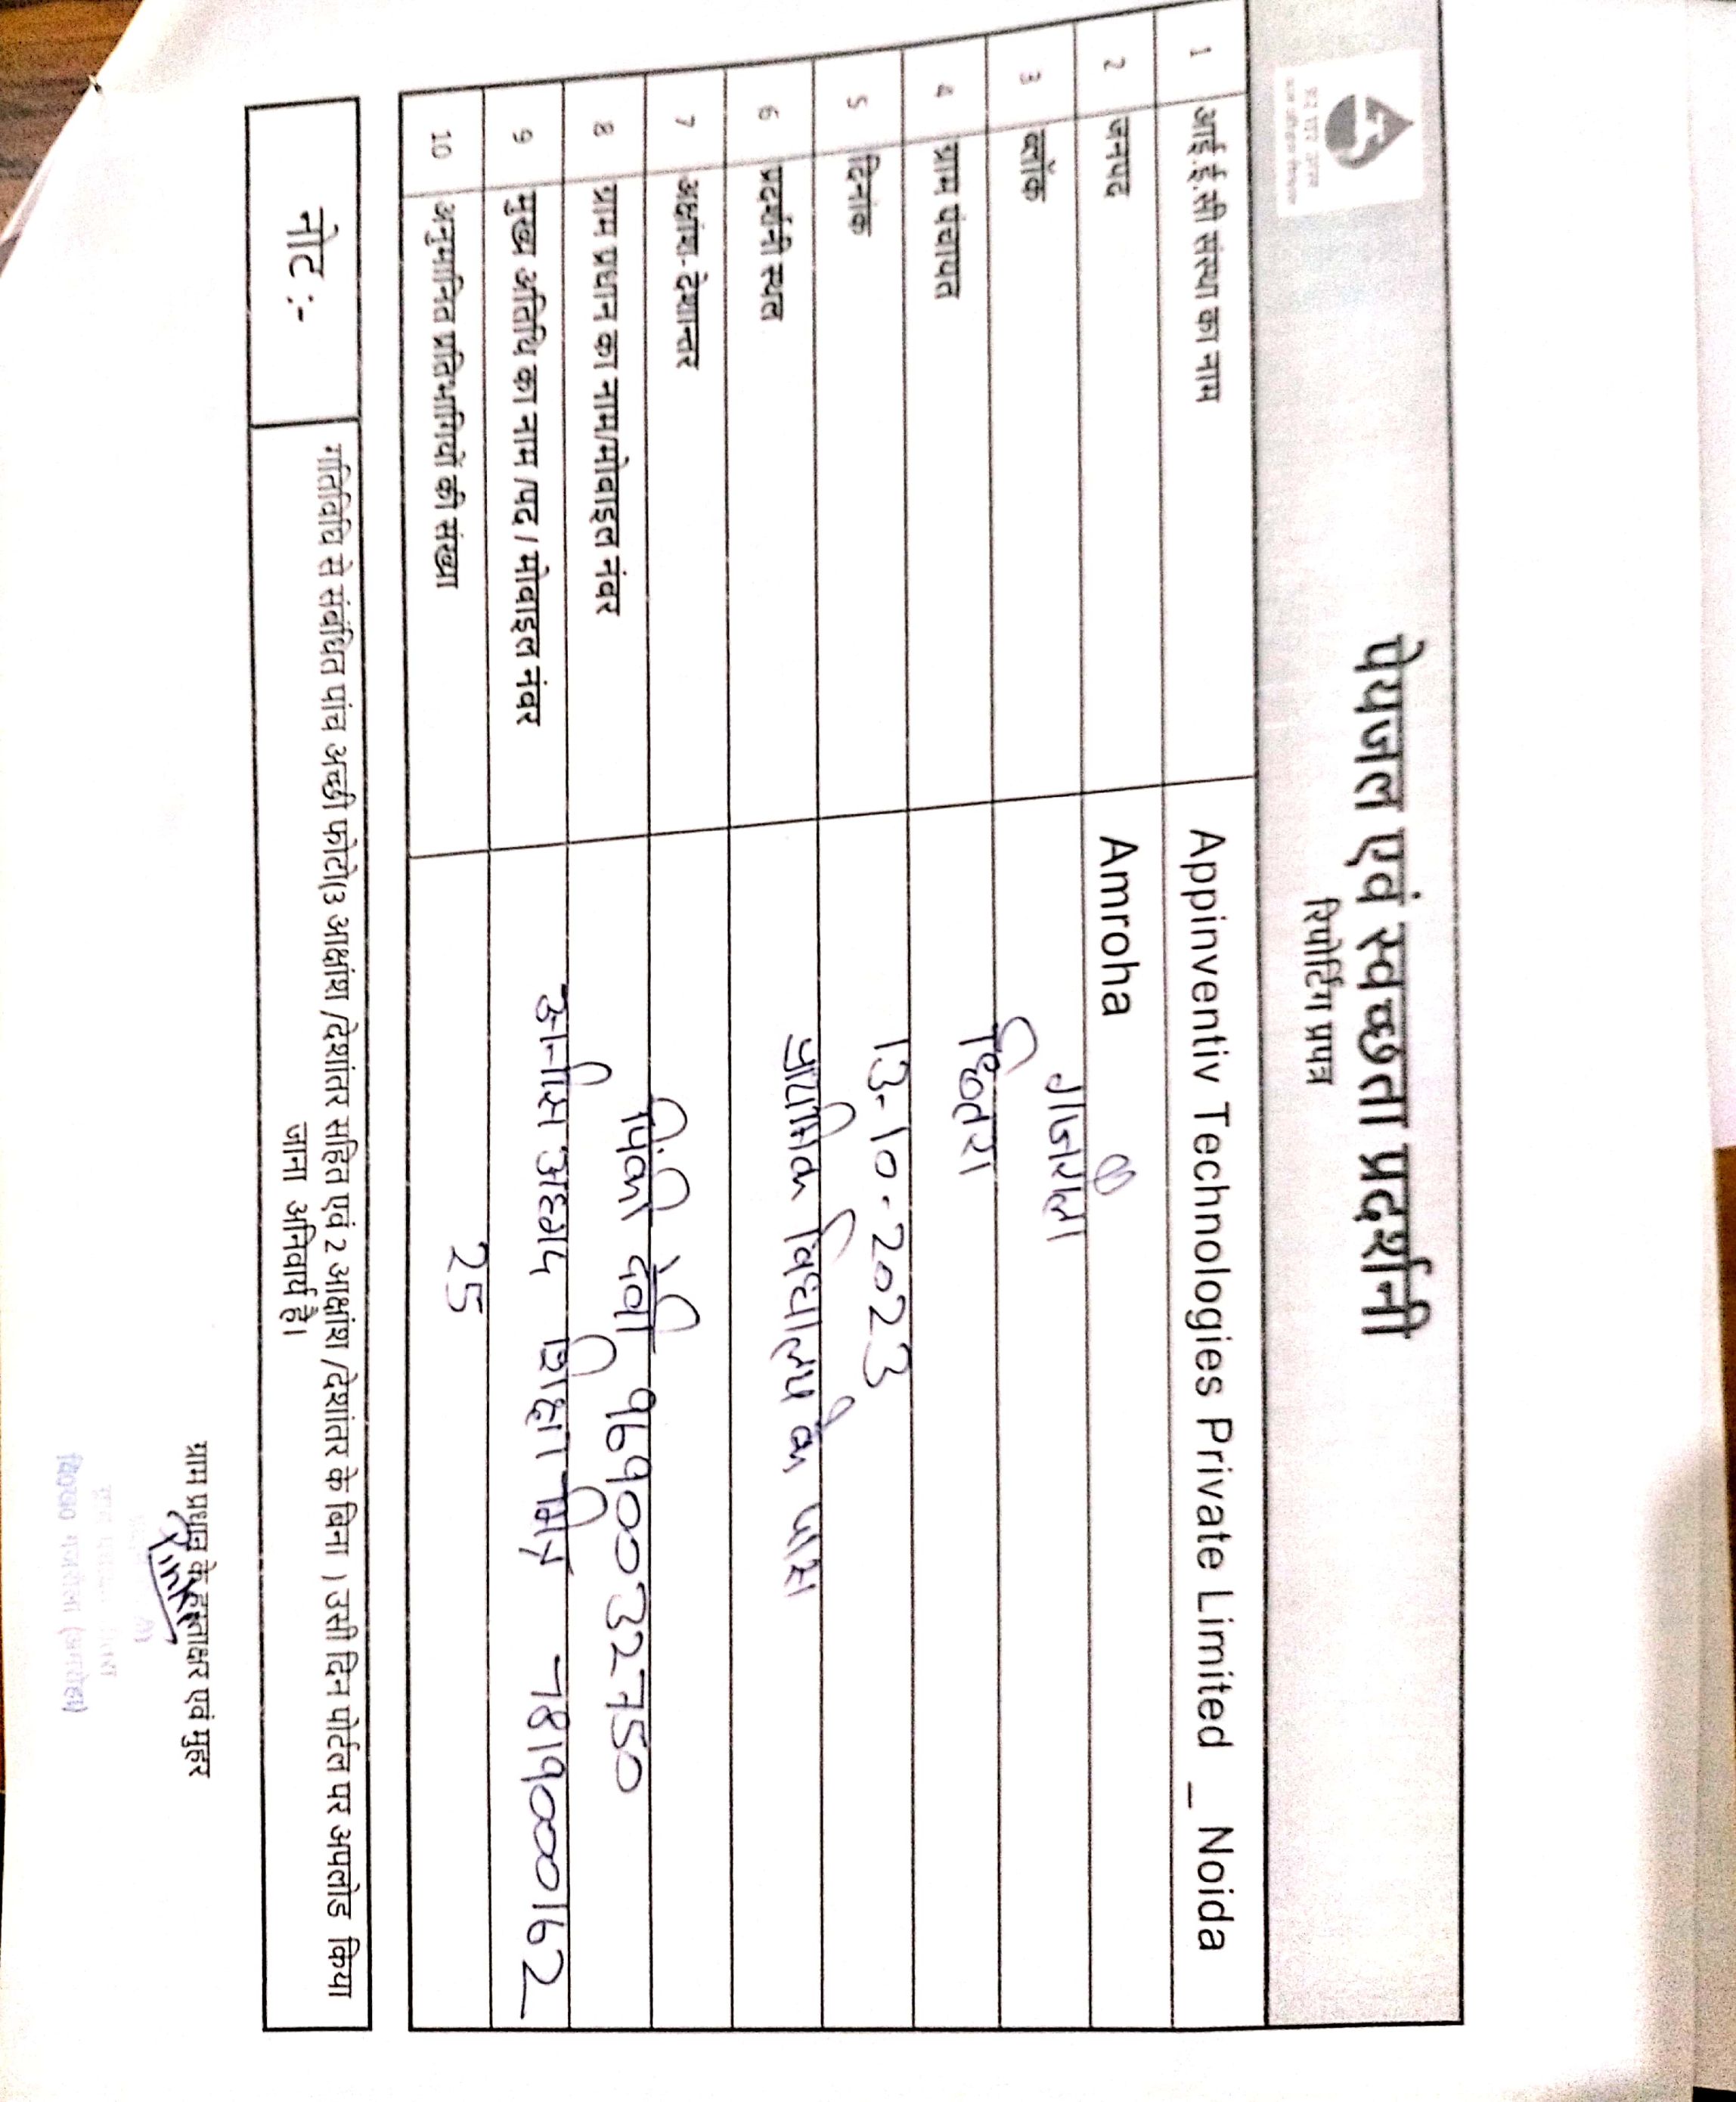 पेयजल एवं स्वच्छता प्रदर्शनी
रिपोर्टिंग प्रपत्र
1 आई.ई.सी संस्था का नाम Appinventiv Technologies Private Limited _ Noida
2 जनपद Amroha
3 ब्लॉक गजरौला
4 ग्राम पंचायत
5 दिनांक 13-10-2023
6 प्रदर्शनी स्थल प्राथमिक विद्यालय के पास
7 अक्षांश-देशान्तर
8 ग्राम प्रधान का नाम/मोबाइल नंबर पिंकी देवी 9690032750
9 मुख्य अतिथि का नाम /पद / मोबाइल नंबर अनीस अहमद शिक्षा मित्र 7819000162
10 अनुमानित प्रतिभागियों की संख्या 25
नोट :- गतिविधि से संबंधित पांच अच्छी फोटो(3 आक्षांश /देशांतर सहित एवं 2 आक्षांश /देशांतर के बिना ) उसी दिन पोर्टल पर अपलोड किया
जाना अनिवार्य है।
ग्राम प्रधान के हस्ताक्षर एवं मुहर
वि०ख० गजरौला (अमरोहा)